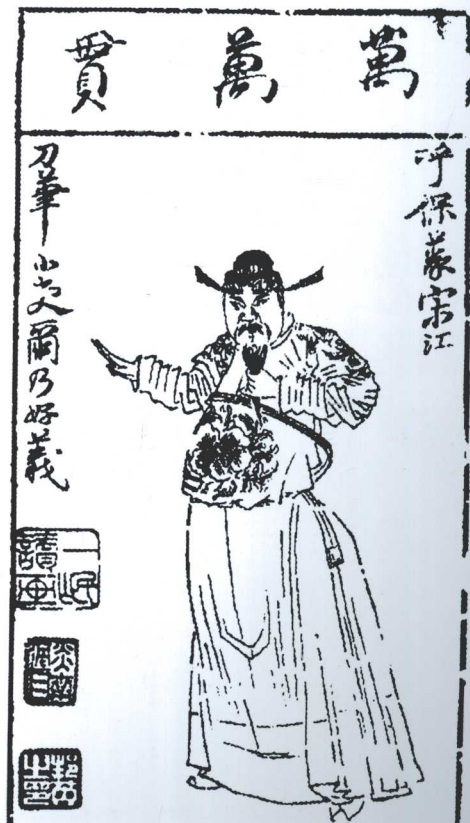 萬萬貫
呼保義宋江
刀筆小吏爾乃好義
一氓讀畫